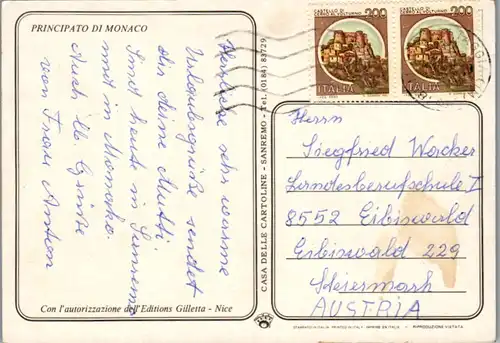 PRINCIPATO DI MONACO
Herzliche sehr warme
Urlaubsgrüße sendet
dir deine Mutti.
Sind heute in Sanremo
und in Monako.
Auch lb. Grüße
von Frau Anton
Con l'autorizzazione dell'Editions Gilletta - Nice
CASA DELLE CARTOLINE - SANREMO - Tel. (0184) 83729
CASTELLO DI CERRO AL VOLTURNO 200
ITALIA
CASTELLO DI CERRO AL VOLTURNO 200
ITALIA
Herrn
Siegfried Wacker
Landesberufschule II
8552 Eibiswald
Eibiswald 229
Steiermark
AUSTRIA
STAMPATO IN ITALIA PRINTED IN ITALY IMPRIMÉ EN ITALIE - RIPRODUZIONE VIETATA